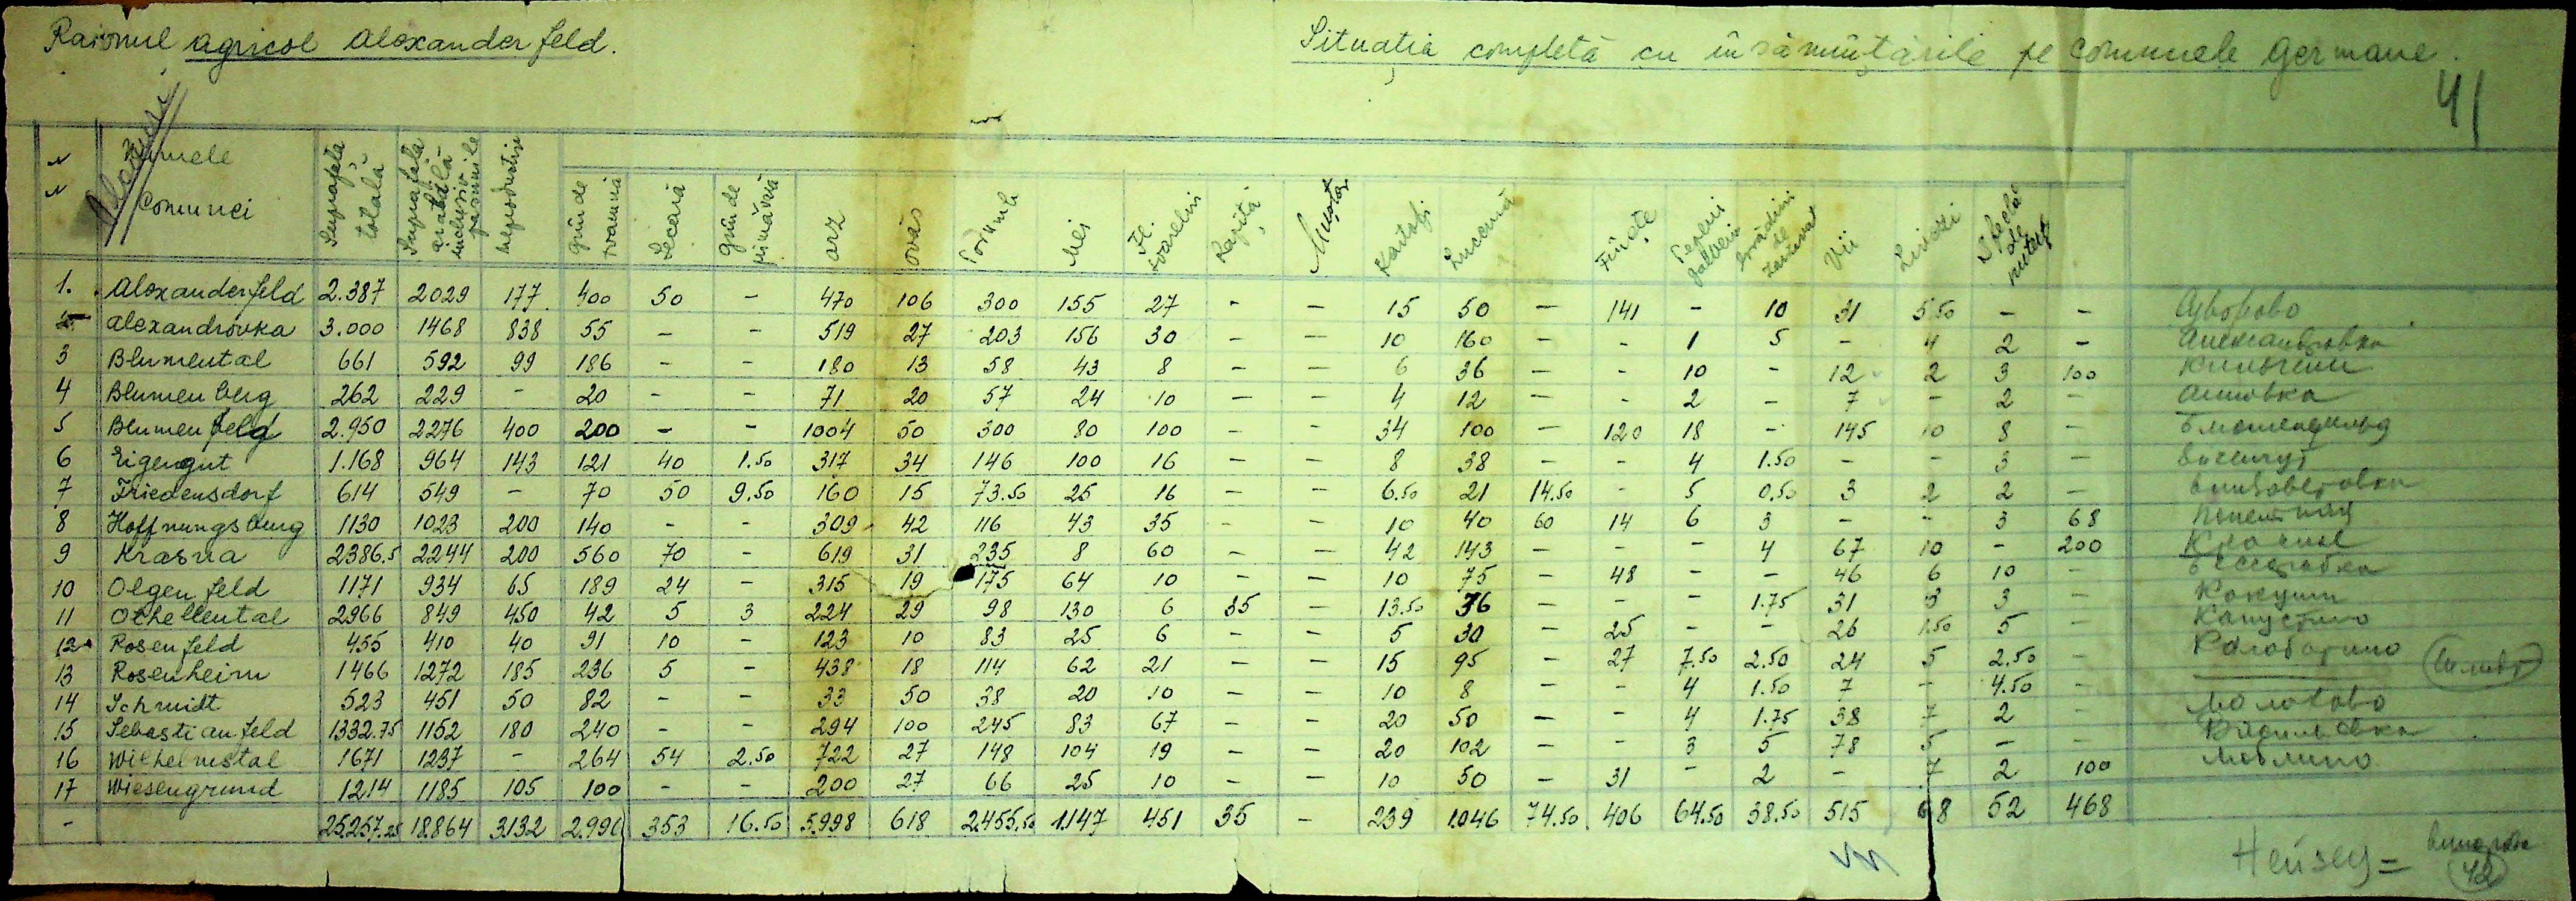 Raionul agricol Alexanderfeld.
Situația completă cu însămînțările pe comunele germane.
41
N N
Numele Comunei
Suprafața totală
Suprafața arabilă inclusiv pășunile
Neproductive
Grîu de toamnă
Secară
Grîu de primăvară
Orz
Ovăs
Porumb
Mei
Fl. soarelui
Rapiță
Muștar
Kartofi
Lucernă
Fînețe
Pepeni galbeni
Grădini de zarzavat
Vii
Livezi
Sfeclă de nutreț
1. Alexanderfeld 2.387 2029 177 400 50 - 470 106 300 155 27 - - 15 50 - 141 - 10 31 5.50 - - Суворово
2 Alexandrovka 3.000 1468 838 55 - - 519 27 203 156 30 - - 10 160 - - 1 5 - 4 2 - Александровка
3 Blumental 661 592 99 186 - - 180 13 58 43 8 - - 6 36 - - 10 - 12 2 3 100
4 Blumenberg 262 229 - 20 - - 71 20 57 24 10 - - 4 12 - - 2 - 7 - 2 -
5 Blumenfeld 2.950 2276 400 200 - - 1004 50 300 80 100 - - 34 100 - 120 18 - 145 10 8 -
6 Eigengut 1.168 964 143 121 40 1.50 317 34 146 100 16 - - 8 38 - - 4 1.50 - - 3 -
7 Friedensdorf 614 549 - 70 50 9.50 160 15 73.50 25 16 - - 6.50 21 14.50 - 5 0.50 3 2 2 -
8 Hoffnungsburg 1130 1023 200 140 - - 309 42 116 43 35 - - 10 40 60 14 6 3 - - 3 68
9 Krasna 2386.5 2244 200 560 70 - 619 31 235 8 60 - - 42 143 - - - 4 67 10 - 200 Красное
10 Olgenfeld 1171 934 65 189 24 - 315 19 175 64 10 - - 10 75 - 48 - - 46 6 10 -
11 Othellental 2966 849 450 42 5 3 224 29 98 130 6 35 - 13.50 36 - - - 1.75 31 3 3 -
12 Rosenfeld 455 410 40 91 10 - 123 10 83 25 6 - - 5 30 - 25 - - 26 1.50 5 -
13 Rosenheim 1466 1272 185 236 5 - 438 18 114 62 21 - - 15 95 - 27 7.50 2.50 24 5 2.50 -
14 Schmidt 523 451 50 82 - - 33 50 38 20 10 - - 10 8 - - 4 1.50 7 - 4.50 -
15 Sebastianfeld 1332.75 1152 180 240 - - 294 100 245 83 67 - - 20 50 - - 4 1.75 38 7 2 -
16 Wilhelmstal 1671 1237 - 264 54 2.50 722 27 148 104 19 - - 20 102 - - 3 5 78 5 - - Васильевка
17 Wiesengrund 1214 1185 105 100 - - 200 27 66 25 10 - - 10 50 - 31 - 2 - 7 2 100
- 25.257.25 18.864 3.132 353 16.50 5.998 618 2.455.50 1.147 451 35 - 239 1.046 74.50 406 64.50 38.50 515 68 52 468
42